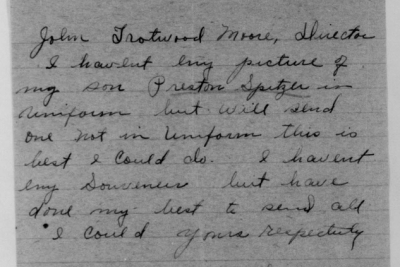 John Trotwood Moore, Director
I havent eny picture of
my son Preston Spitzer in
uniform but will send
one not in Uniform this is
best I could do. I havent
eny Souvenir but have
done my best to send all
I could Yours respectuly